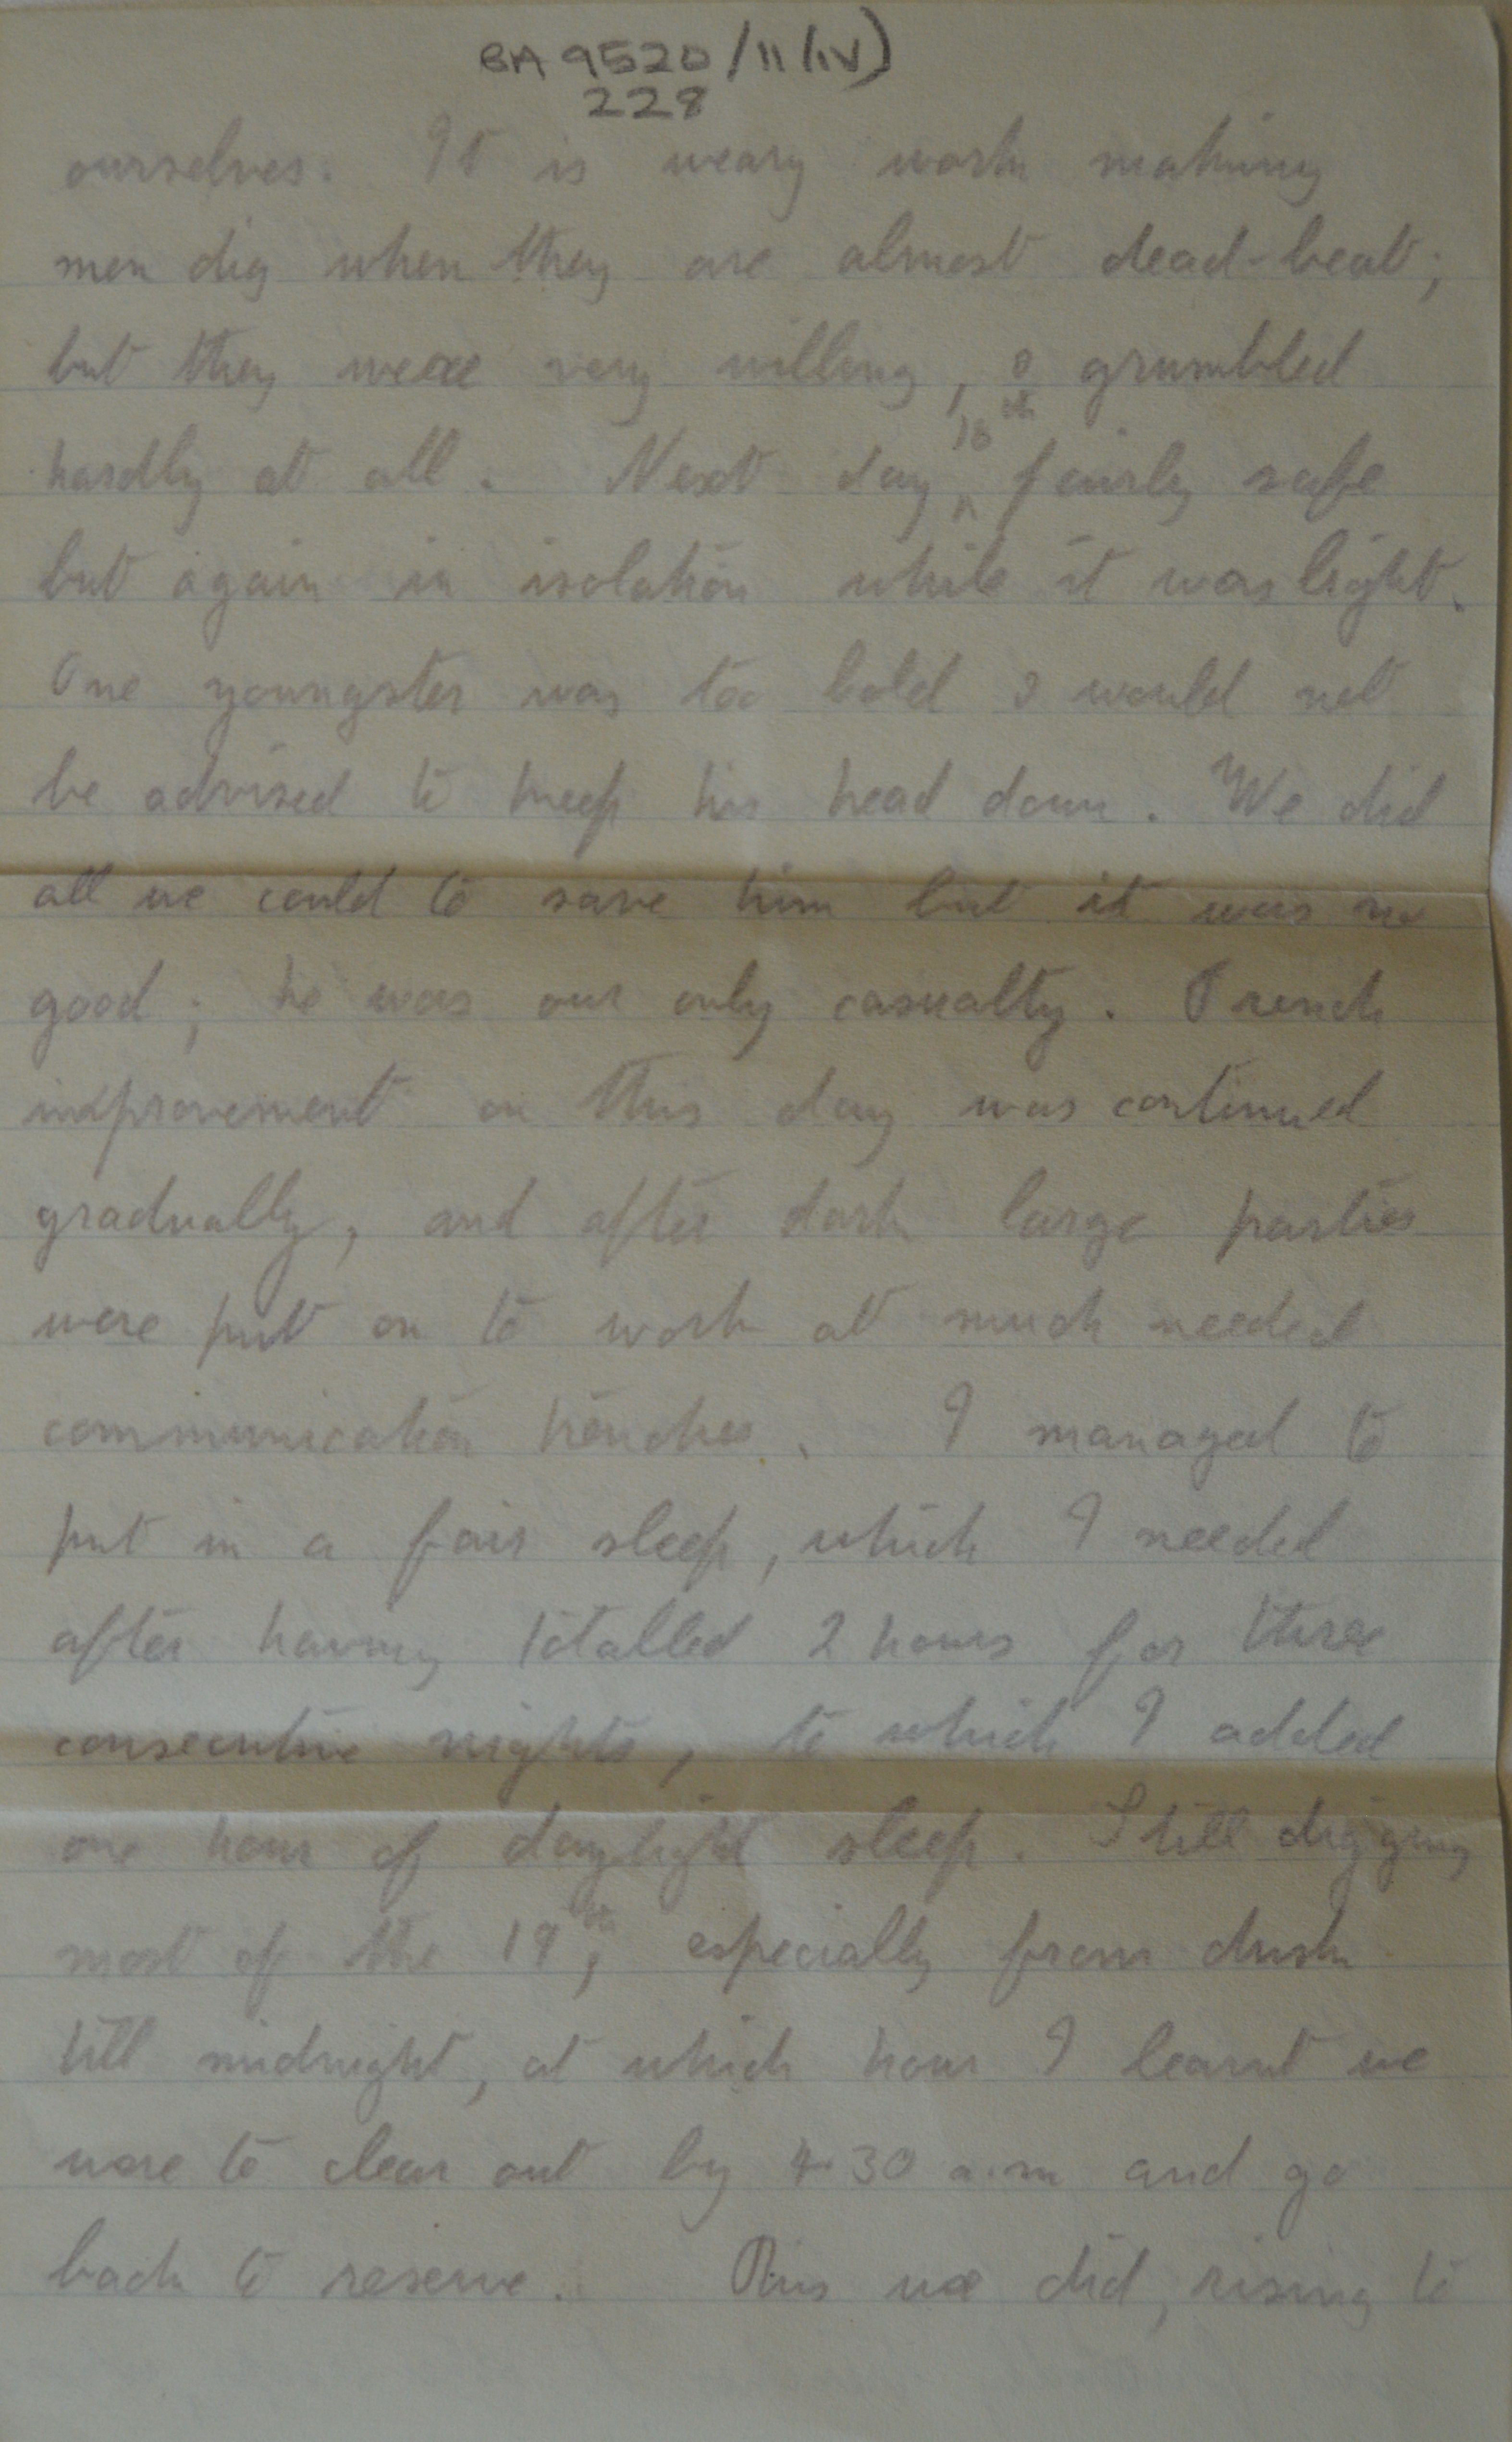 BA 9520/11(IV)
228
ourselves. It is weary work making
men dig when they are almost dead-beat;
but they were very willing, & grumbled
hardly at all. Next day 18th fairly safe
but again in isolation while it was light.
One youngster was too bold & would not
be advised to keep his head down. We did
all we could to save him but it was no
good; he was our only casualty. Trench
improvement on this day was continued
gradually, and after dark large parties
were put on to work at much needed
communication trenches. I managed to
put in a fair sleep, which I needed
after having totalled 2 hours for three
consecutive nights, to which I added
one hour of daylight sleep. Still digging
most of the 19th, especially from dusk
till midnight, at which hour I learnt we
were to clear out by 4.30 a.m and go
back to reserve. This we did, rising to